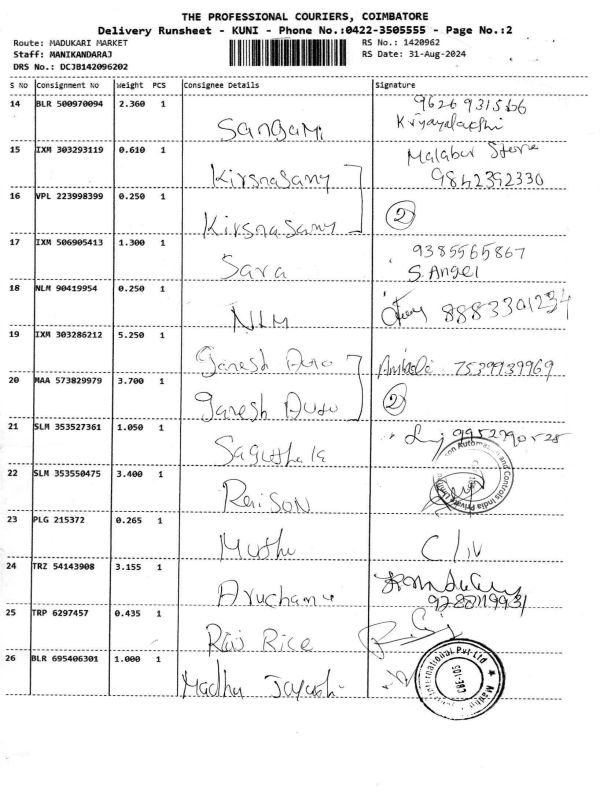 THE PROFESSIONAL COURIERS, COIMBATORE
Delivery Runsheet - KUNI - Phone No.:0422-3505555 - Page No.:2
Route: MADUKARI MARKET RS No.: 1420962
Staff: MANIKANDARAJ RS Date: 31-Aug-2024
DRS No.: DCJB142096202
S No Consignment No Weight PCS Consignee Details Signature
14 BLR 500970094 2.360 1 Sangami
15 IXM 303293119 0.610 1 Kirsnasamy Malabar Store
9842392330
16 VPL 223998399 0.250 1 Kirsnasamy 2
17 IXM 506905413 1.300 1 Sara 9385565867
S. Angel
18 NLM 90419954 0.250 1 NLM 8883301234
19 IXM 303286212 5.250 1 Ganesh Auto 7539939969
20 MAA 573829979 3.700 1 Ganesh Auto 2
21 SLM 353527361 1.050 1
22 SLM 353550475 3.400 1 Raison
23 PLG 215372 0.265 1 Muthu
24 TRZ 54143908 3.155 1
25 TRP 6297457 0.435 1 Rice
26 BLR 695406301 1.000 1 Madhu
International Pvt Ltd